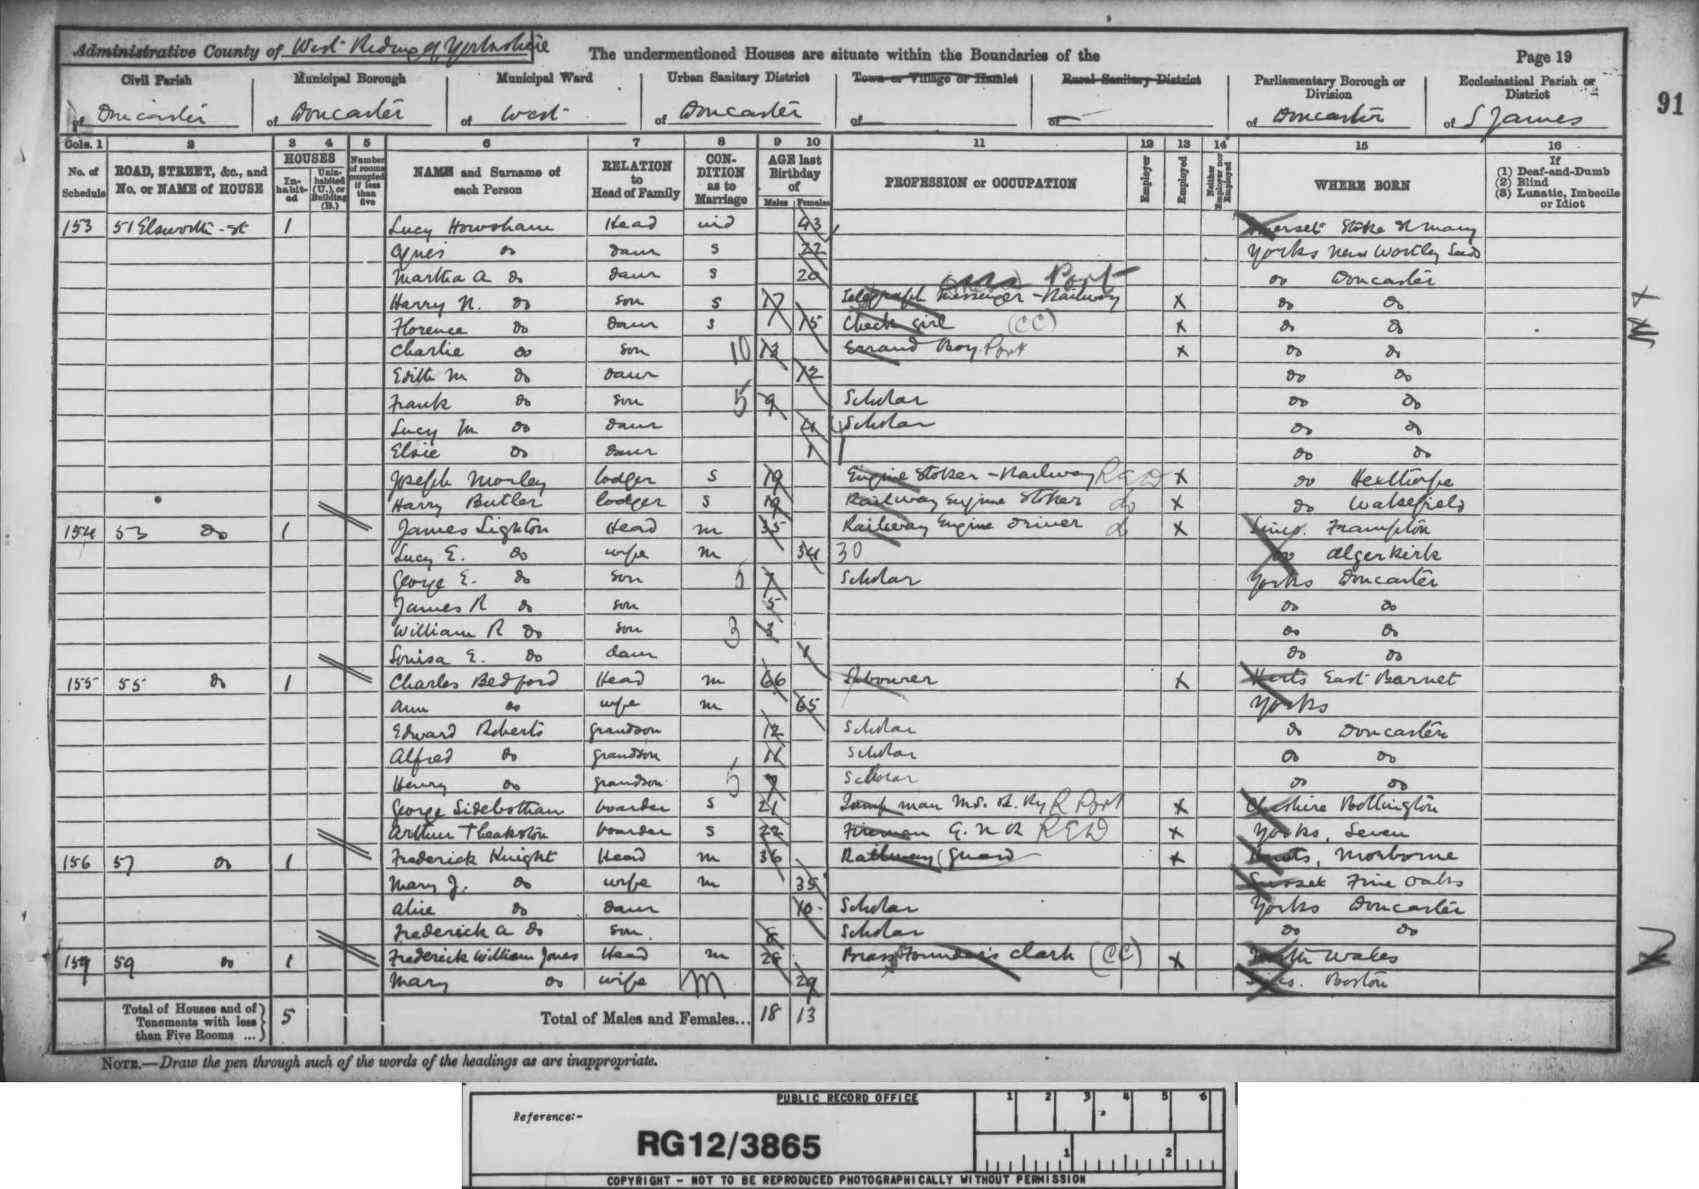 Administrative County of West Riding of Yorkshire The undermentioned Houses are situate within the Boundaries of the Page 19
Civil Parish Municipal Borough Municipal Ward Urban Sanitary District Town or Village or Hamlet Rural Sanitary District Parliamentary Borough or Division Ecclesiastical Parish or District
of Doncaster of Doncaster of West of Doncaster of of of Doncaster of S James
91
Cols. 1 2 3 4 5 6 7 8 9 10 11 12 13 14 15 16
No. of Schedule ROAD, STREET, &c., and No. or NAME of HOUSE HOUSES In-habit-ed Unin-habited (U.), or Building (B.) Number of rooms occupied if less than five NAME and Surname of each Person RELATION to Head of Family CON-DITION as to Marriage AGE last Birthday of Males Females PROFESSION or OCCUPATION Employer Employed Neither Employer nor Employed WHERE BORN If (1) Deaf-and-Dumb (2) Blind (3) Lunatic, Imbecile or Idiot
153 51 Elsworth St 1 Lucy Howsham Head wid 43 Somerset Stoke St Mary
Agnes do daur S 22 Yorks New Wortley Leeds
Martha A do daur S 20 do Doncaster
Port
Harry N. do son S 17 Telegraph Messenger - Railway X do do
Florence do daur S 15 Check girl (CC) X do do
Charlie do son 10 13 Errand Boy Port X do do
Edith M do daur 12 do do
Frank do son 5 9 Scholar do do
Lucy M do daur 4 Scholar do do
Elsie do daur 1 do do
Joseph Morley lodger S 19 Engine Stoker - Railway RED X do Hexthorpe
Harry Butler lodger S 19 Railway Engine Stoker do X do Wakefield
154 53 do 1 James Lighton Head m 35 Railway Engine Driver do X Linc. Frampton
Lucy E. do wife m 34 30 do Algerkirk
George E. do son 5 7 Scholar Yorks Doncaster
James R do son 5 do do
William R do son 3 3 do do
Louisa E. do daur 1 do do
155 55 do 1 Charles Bedford Head m 66 Labourer X Herts East Barnet
Ann do wife m 65 Yorks
Edward Roberts grandson 12 Scholar do Doncaster
Alfred do grandson 11 Scholar do do
Henry do grandson 5 Scholar do do
George Sidebotham boarder S 21 Lamp man M.S. & L Ry R Port X Cheshire Bollington
Arthur Theakston boarder S 22 Fireman G.N.R RED X Yorks, Leven
156 57 do 1 Frederick Knight Head m 36 Railway Guard X Hunts, Morborne
Mary J. do wife m 35 Sussex Five Oaks
Alice do daur 10 Scholar Yorks Doncaster
Frederick A do son 8 Scholar do do
157 59 do 1 Frederick William Jones Head m 28 Brass Founder's Clark (CC) X North Wales
Mary do wife M 29 Lincs. Boston
Total of Houses and of Tenements with less than Five Rooms ... 5 Total of Males and Females... 18 13
NOTE.—Draw the pen through such of the words of the headings as are inappropriate.
PUBLIC RECORD OFFICE 1 2 3 4 5 6
Reference:-
RG12/3865
1 2
COPYRIGHT - NOT TO BE REPRODUCED PHOTOGRAPHICALLY WITHOUT PERMISSION